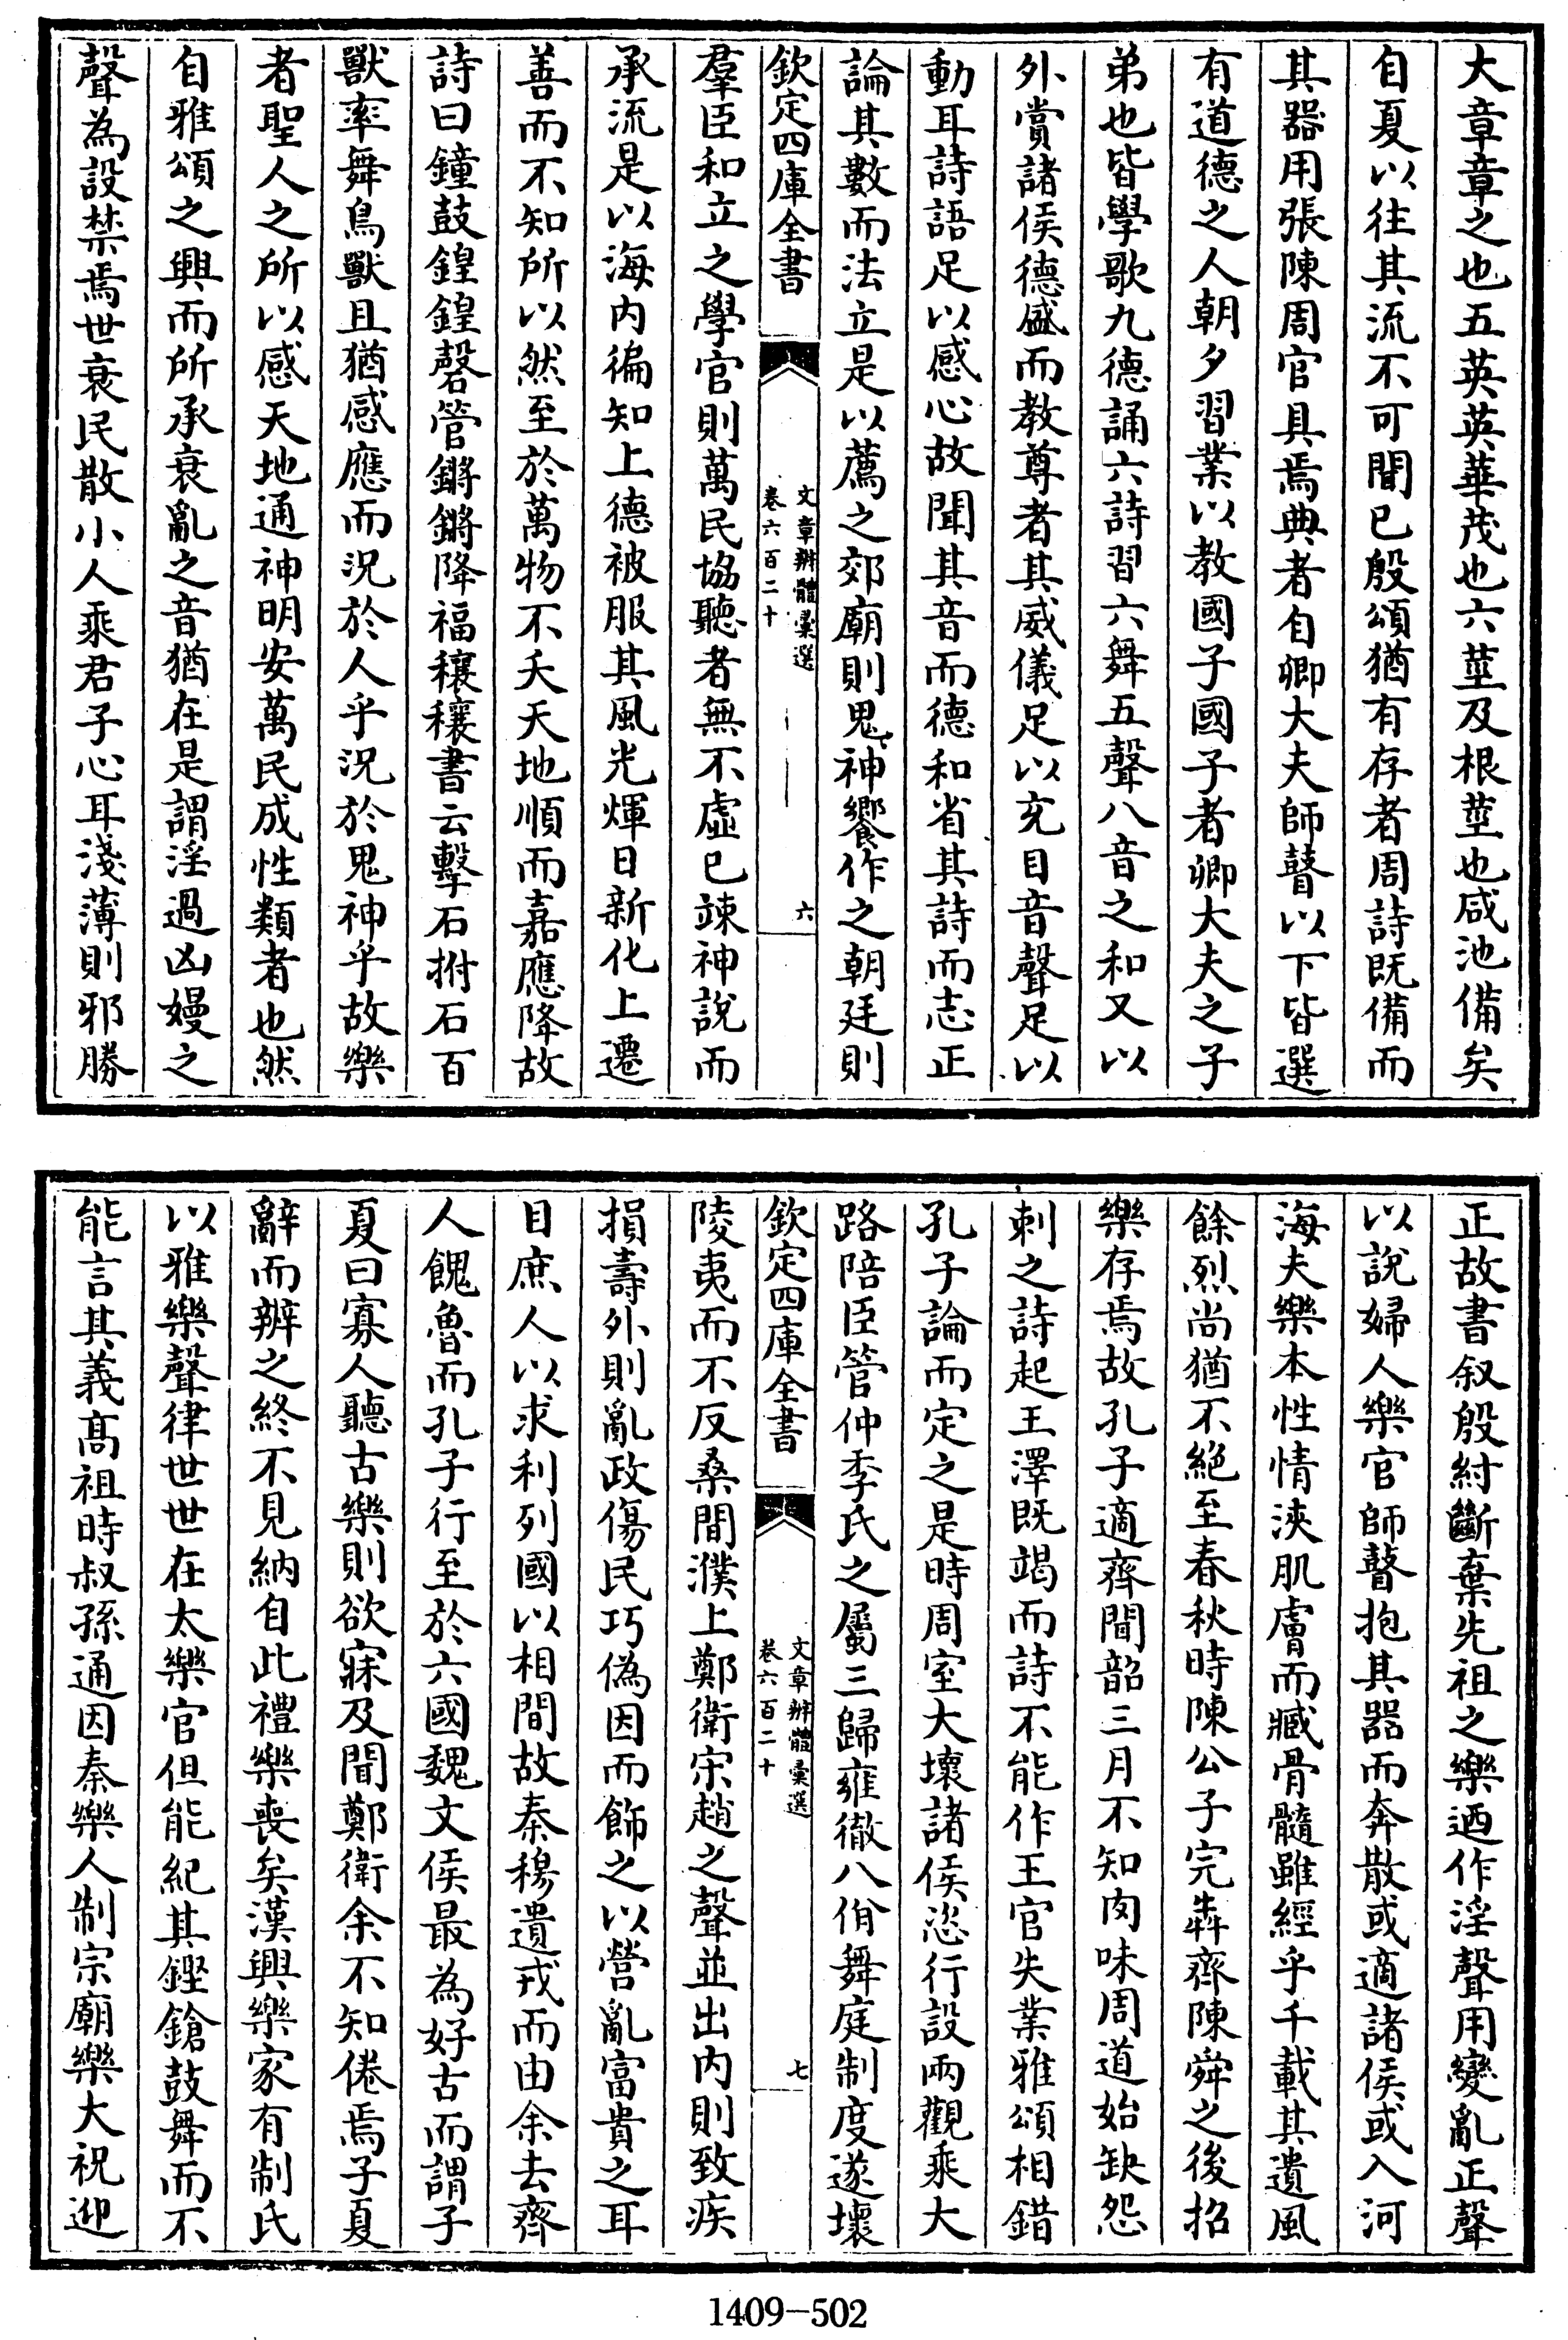 大章章之也五英英華茂也六莖及根莖也咸池備矣
自夏以往其流不可聞已殷頌猶有存者周詩既備而
其器用張陳周官具焉典者自卿大夫師瞽以下皆選
有道德之人朝夕習業以教國子國子者卿大夫之子
弟也皆學歌九德誦六詩習六舞五聲八音之和又以
外賞諸侯德盛而教尊者其威儀足以充目音聲足以
動耳詩語足以感心故聞其音而德和省其詩而志正
論其數而法立是以薦之郊廟則鬼神饗作之朝廷則
欽定四庫全書
文章辨體彙選
卷六百二十
六
羣臣和立之學官則萬民協聽者無不虛已竦神說而
承流是以海内徧知上德被服其風光煇日新化上遷
善而不知所以然至於萬物不夭天地順而嘉應降故
詩曰鐘鼓鍠鍠磬管鏘鏘降福穰穰書云擊石拊石百
獸率舞鳥獸且猶感應而況於人乎況於鬼神乎故樂
者聖人之所以感天地通神明安萬民成性類者也然
自雅頌之興而所承衰亂之音猶在是謂淫過凶嫚之
聲為設禁焉世衰民散小人乘君子心耳淺薄則邪勝
正故書叙殷紂斷棄先祖之樂迺作淫聲用變亂正聲
以說婦人樂官師瞽抱其器而奔散或適諸侯或入河
海夫樂本性情浹肌膚而臧骨髓雖經乎千載其遺風
餘烈尚猶不絶至春秋時陳公子完犇齊陳舜之後招
樂存焉故孔子適齊聞韶三月不知肉味周道始缺怨
刺之詩起王澤既竭而詩不能作王官失業雅頌相錯
孔子論而定之是時周室大壞諸侯恣行設兩觀乘大
路陪臣管仲季氏之屬三歸雍徹八佾舞庭制度遂壞
欽定四庫全書
文章辨體彙選
卷六百二十
七
陵夷而不反桑間濮上鄭衛宋趙之聲並出内則致疾
損壽外則亂政傷民巧偽因而飾之以營亂富貴之耳
目庶人以求利列國以相間故秦穆遺戎而由余去齊
人餽魯而孔子行至於六國魏文侯最為好古而謂子
夏曰寡人聽古樂則欲寐及聞鄭衛余不知倦焉子夏
辭而辨之終不見納自此禮樂喪矣漢興樂家有制氏
以雅樂聲律世世在太樂官但能紀其鏗鎗鼓舞而不
能言其義高祖時叔孫通因秦樂人制宗廟樂大祝迎
1409-502